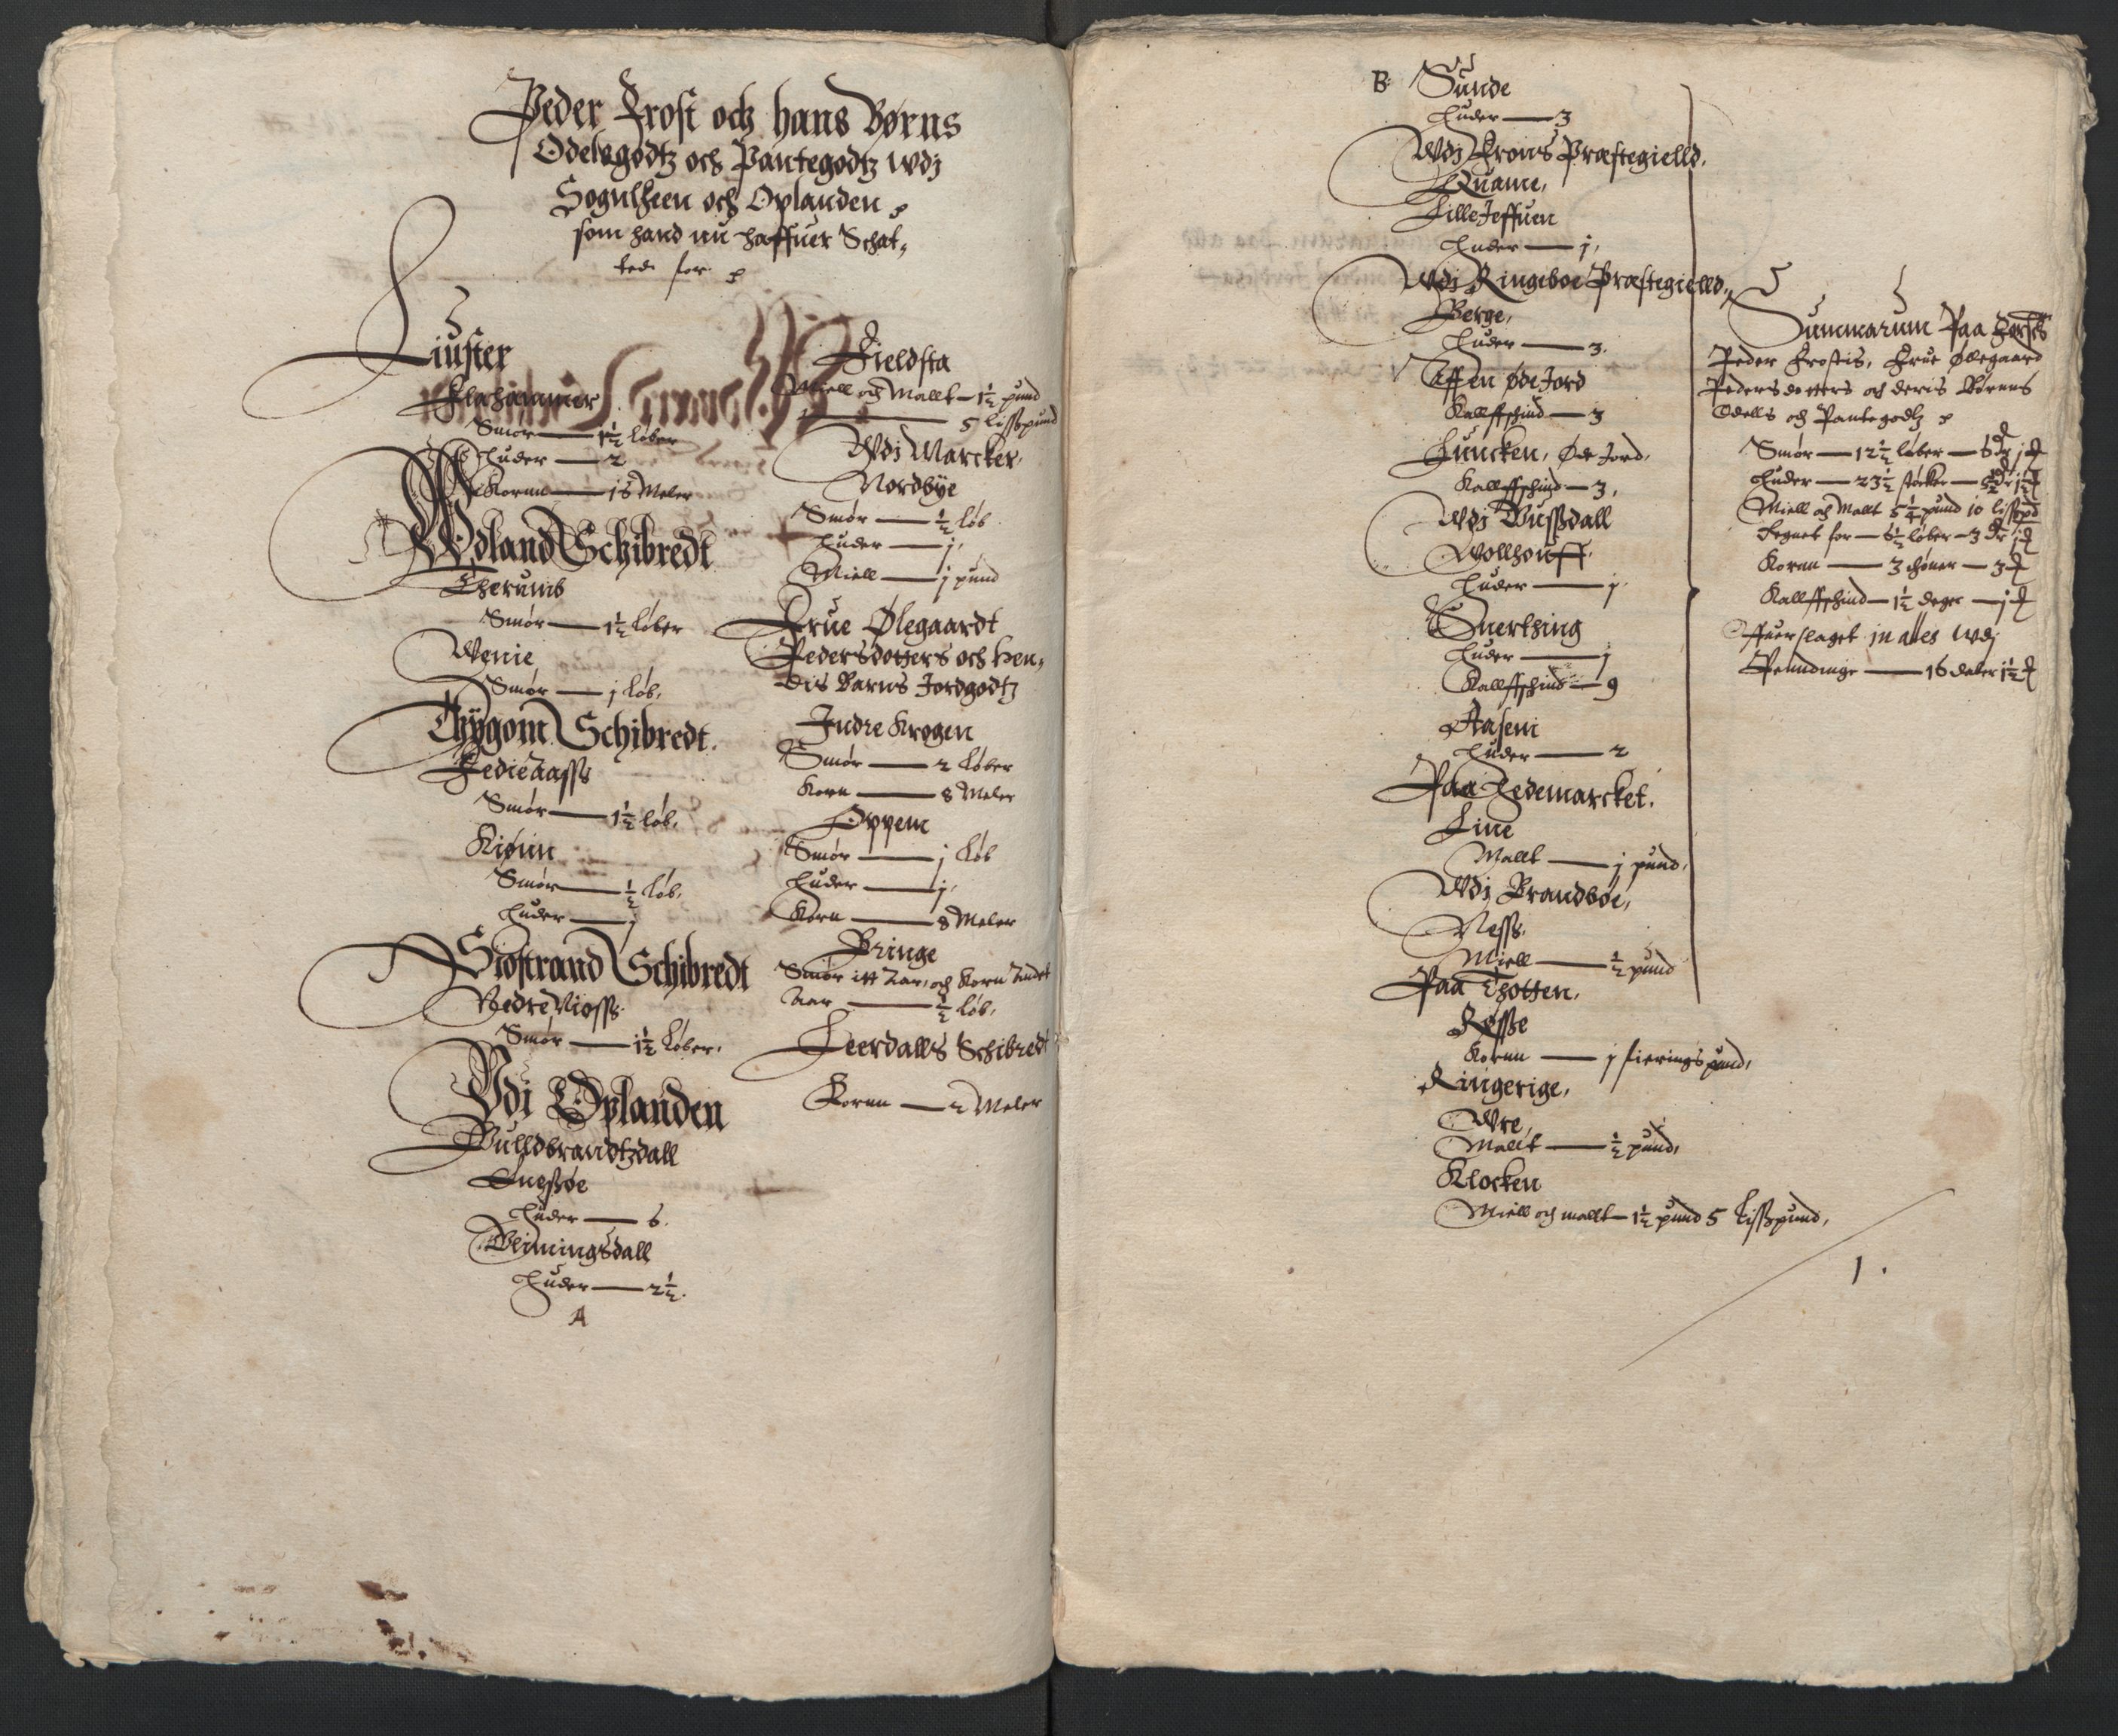 Peder Frost och hans Børns
Odelsgodtz och Pantegodtz wdj
Sognlheen och Oplanden
som hand nu haffuer Schat,,
ted for
Liuster
Flahammer
Smør — 1½ løber
Huder — 2
Kornn — 16 Meler
Wdland Schibredt
Therumb
Smør — 1½ Løber
Wenie
Smør — j Løb,
Thÿgom Schibredt.
Fedieaass
Smør — 1½ løb,
Kiønn
Smør — ½ Løb,
Huder — j
Siøstrand Schibredt
Nedre Nioss
Smør — 1½ Løber,
Wdi Oplanden
Gulldbrandtzdall
Huder — 6.
Huder — 2½.
A
Fieldsta
Miell och Mallt — 1½ pund
5 lisspund
Wdj Marcker,
Nordbÿe
Smør — ½ løb
Huder — j,
Miell — j pund
Frue Ølegaardt
Pedersdotters och hen,,
dis Barns Jordgodtz
Indre Krogen
Smør — 2 Løber
Korn — 8 Meler
Oppem
Smør — j Løb
Huder — j,
Korn — 8 Meler
Bringe
Smør itt Aar, och Korn Andet
Aar — ½ Løb,
Leerdalls Schibredt
Kornn — 2 Meler
B Sunde
Huder — 3
Wdj Frons Præstegielld,
Quame,
Lille Jeffuen
Huder — j,
Wdj Ringeboe Præstegielld,
Berge,
Huder — 3.
Øde Jord
Kallfschind — 3
Huncken, Øde Jord,
Kallfschind — 3,
Wdj Gussdall
Wollhouff,
Huder — j.
Suerthing
Huder — j
Kallfschind — 9
Aasem
Huder — 2
Paa Hedemarcket.
Line
Mallt — j pund,
Wdj Brandboe,
Ness.
Miell — ½ pund
Paa Thotten,
Røsse
Kornn — j fierings pund,
Ringerige,
Wre,
Mallt — ½ pund,
Klocken
Miell och mallt — 1½ pund 5 Lisspund,
Summarum Paa
Peder Frostis, Frue Ølegaard
Pedersdotters och deris Børens
Odells och Pantegodtz
Smør — 12½ løber — 6 dr j
Huder — 23½ støcker —
Miell och Mallt 5¼ pund 10 lisspd
Regnet for — 6½ løber — 3 dr j
Kornn — 3 — 3
Kallfschind — 1½ deger — j
Offuerslaget in alles wdj
Penndinge — 16 daler 1½
1.